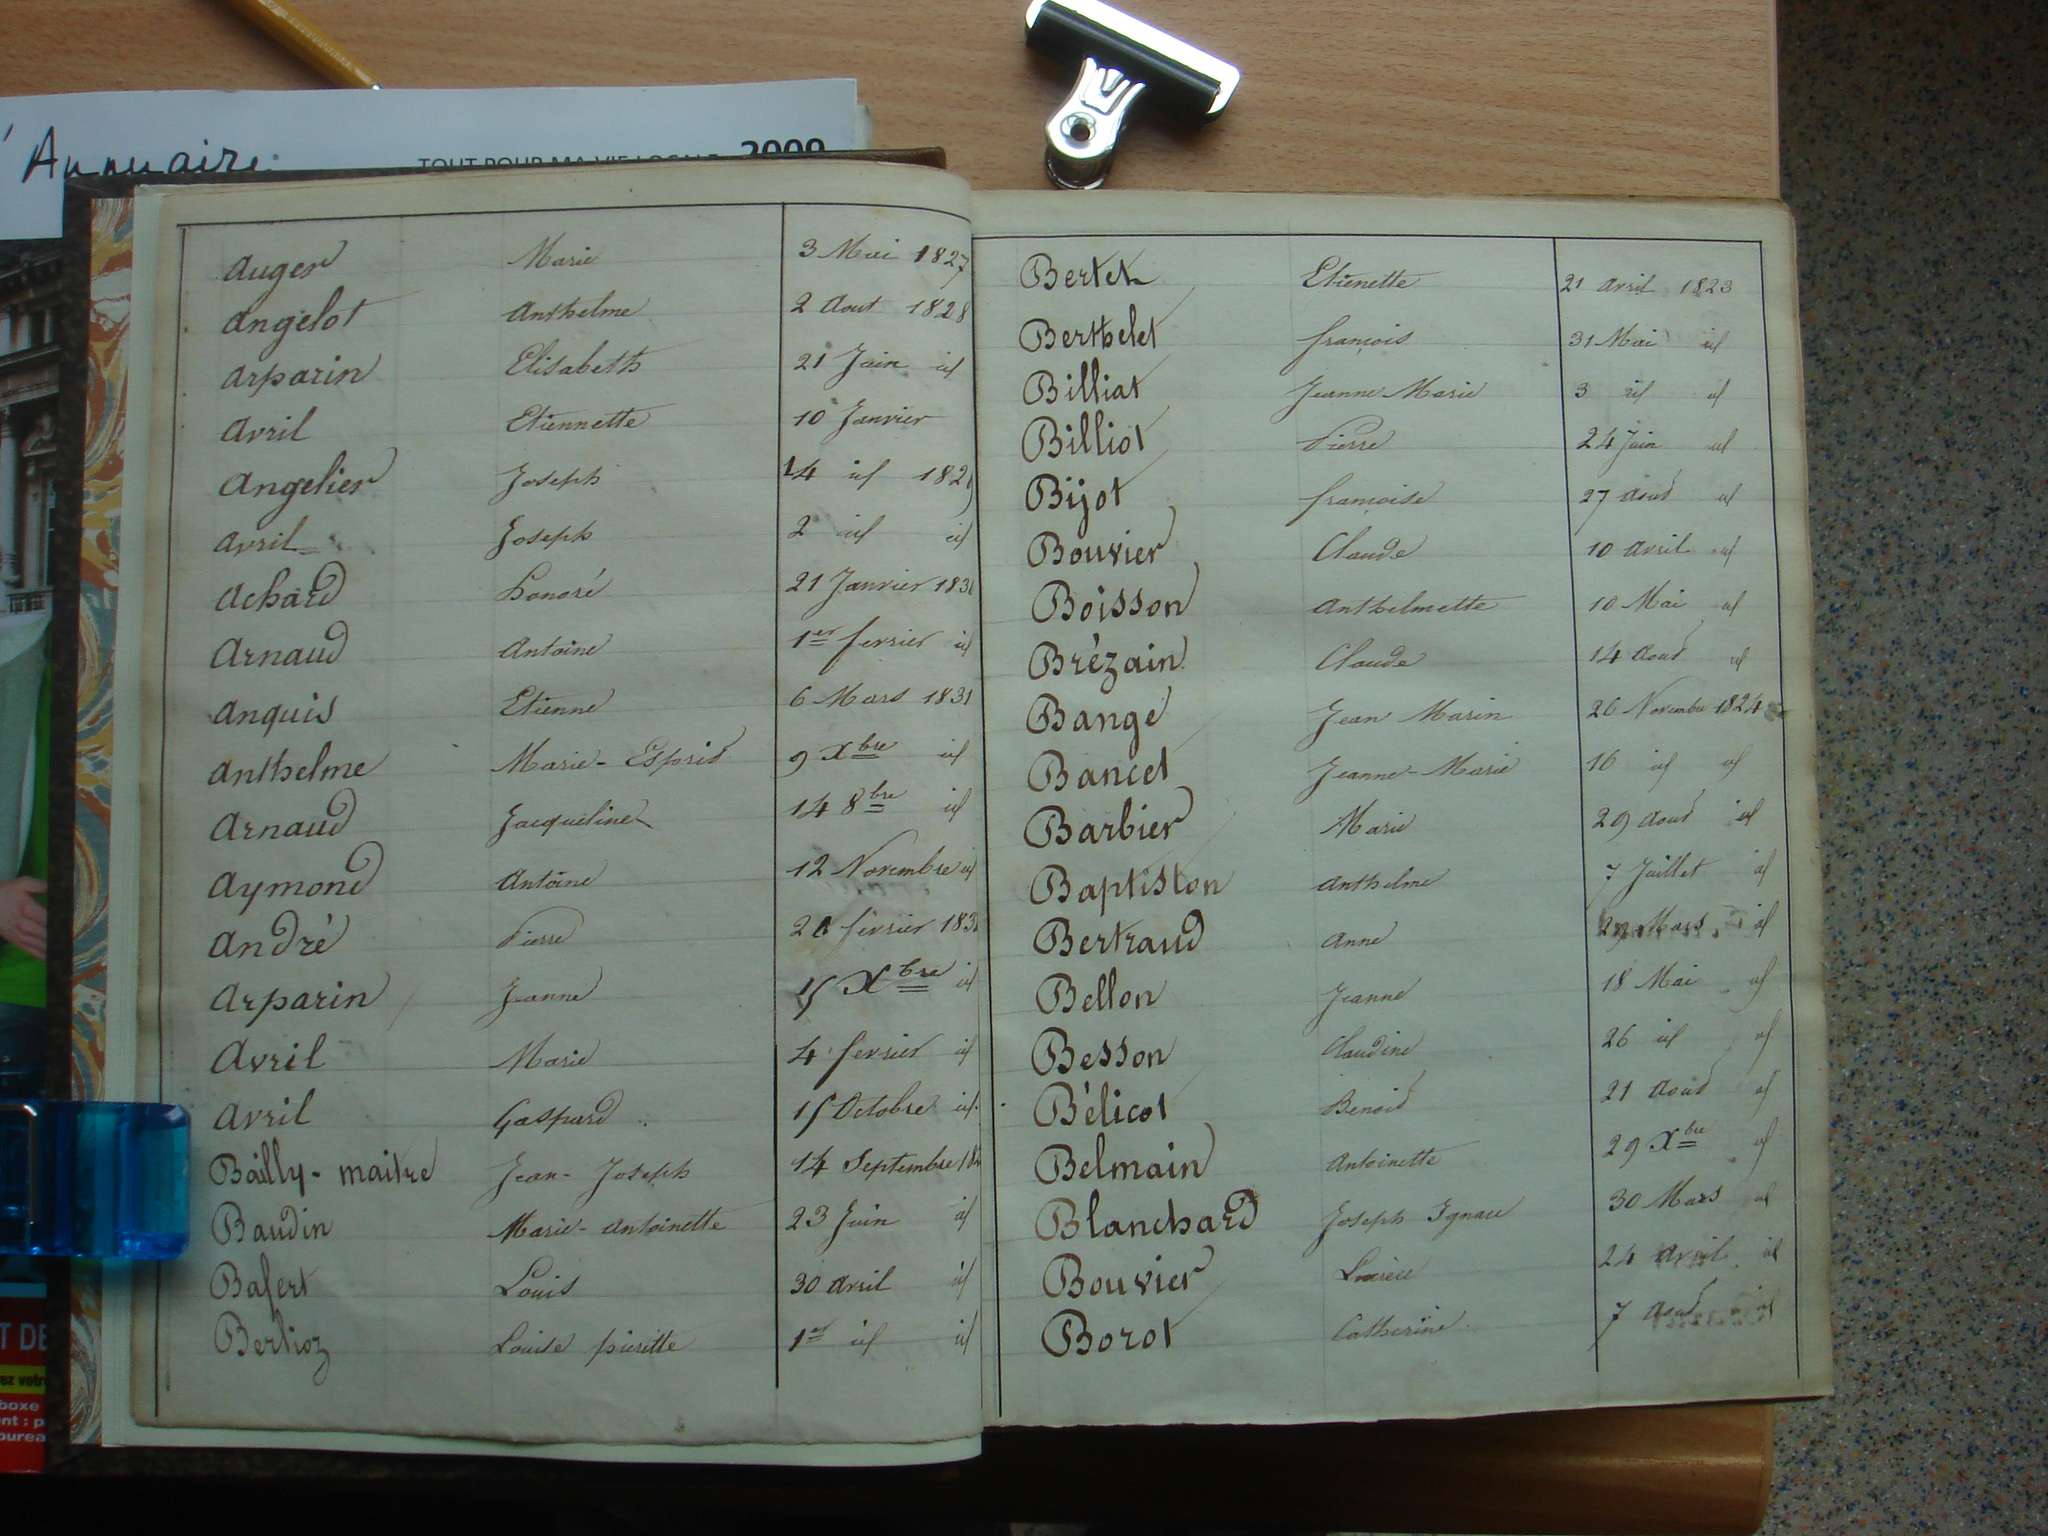 Annuaire
TOUT POUR MA VIE LOCALE 2009
Auger Marie 3 Mai 1827
Angelot Anthelme 2 Aout 1828
Arparin Elisabeth 21 Juin id
Avril Etiennette 10 Janvier
Angelier Joseph 14 id 182
Avril Joseph 2 id id
Achard honoré 21 Janvier 183
Arnaud Antoine 1er fevrier id
Anquis Etienne 6 Mars 1831
Anthelme Marie-Esprit 9 Xbre id
Arnaud Jacqueline 14 8bre id
Aymond Antoine 12 Novembre id
André Pierre fevrier 183
Arparin Jeanne 15 Xbre id
Avril Marie 4 fevrier id
Avril Gaspard 15 Octobre id.
Bailly-maitre Jean-Joseph 14 Septembre 18
Baudin Marie-Antoinette 23 Juin id
Bafert Louis 30 Avril id
Berlioz Louise pierette 1er id id
Bertet Etienette 21 Avril 1823
Berthelet francois 31 Mai id
Billiat Jeanne Marie 3 id id
Billiot Pierre 24 Juin id
Bijot francoise 27 Aout id
Bouvier Claude 10 Avril id
Boisson Anthelmette 10 Mai id
Brézain Claude 14 Aout id
Bange Jean Marin 26 Novembre 1824
Bancet Jeanne-Marie 16 id id
Barbier Marie 29 Aout id
Baptiston Anthelme 7 Juillet id
Bertraud Anne Mars id
Bellon Jeanne 18 Mai id
Besson Claudine 26 id id
Bélicot Benoit 21 Aout id
Belmain Antoinette 29 Xbre id
Blanchard Joseph Ignace 30 Mars id
Bouvier 24 Avril id
Borot Catherine 7 Aout id
T DE
ez votr
boxe
ent : p
burea